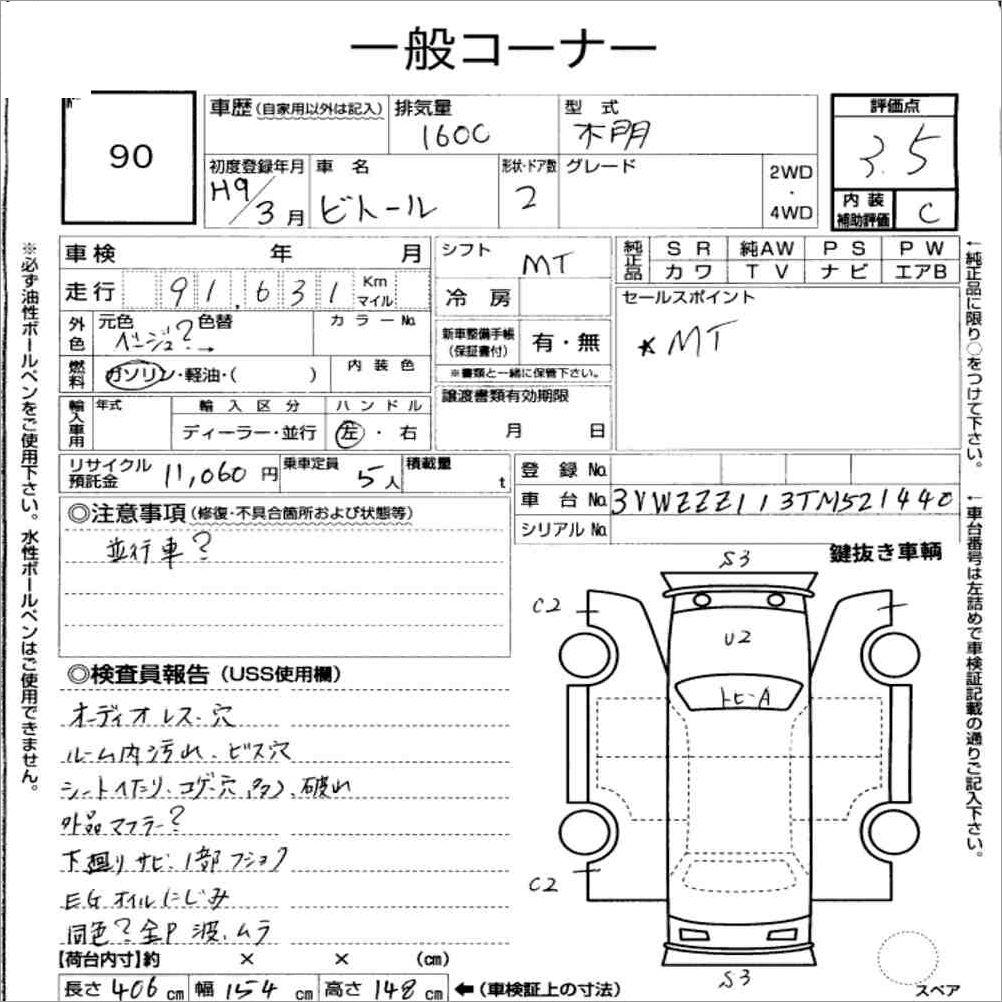 一般コーナー
90
車歴（自家用以外は記入）
排気量
1600
型式
不明
評価点
3.5
初度登録年月
H9/3月
車名
ビートル
形状・ドア数
2
グレード
2WD
・
4WD
内装
補助評価
C
車検 年 月
走行 91,631 Km マイル
外色 元色 ベージュ? → 色替
カラーNo.
燃料 ガソリン・軽油・( )
内装色
輸入車用 年式
輸入区分
ディーラー・並行
ハンドル
左・右
シフト
MT
冷房
新車整備手帳
（保証書付）
有・無
※書類と一緒に保管下さい。
譲渡書類有効期限
月 日
純正品
SR 純AW PS PW
カワ TV ナビ エアB
セールスポイント
*MT
リサイクル預託金 11,060円
乗車定員 5人
積載量 t
登録No.
車台No. 3VWZZZ113TM521440
シリアルNo.
◎注意事項（修復・不具合箇所および状態等）
並行車?
鍵抜き車輌
◎検査員報告（USS使用欄）
オーディオレス・穴
ルーム内汚れ・ビス穴
シートへたり・コゲ穴(多)、破れ
外品マフラー?
下廻りサビ、1部フショク
EGオイルにじみ
同色?全P波、ムラ
【荷台内寸】約 × × (cm)
長さ 406 cm 幅 154 cm 高さ 148 cm ←（車検証上の寸法）
S3
C2
U2
トビーA
C2
S3
スペア
※必ず油性ボールペンをご使用下さい。水性ボールペンはご使用できません。
←純正品に限り○をつけて下さい。
←車台番号は左詰めで車検証記載の通りご記入下さい。